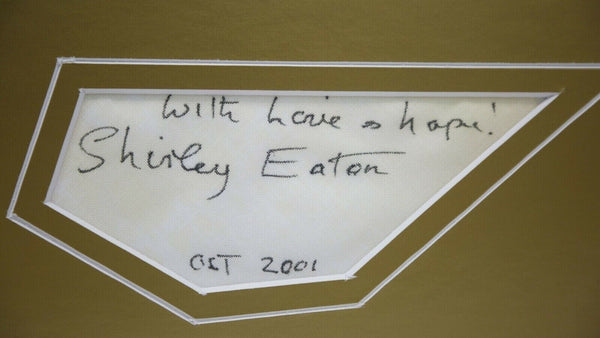 With Love & hope!
Shirley Eaton
OCT 2001